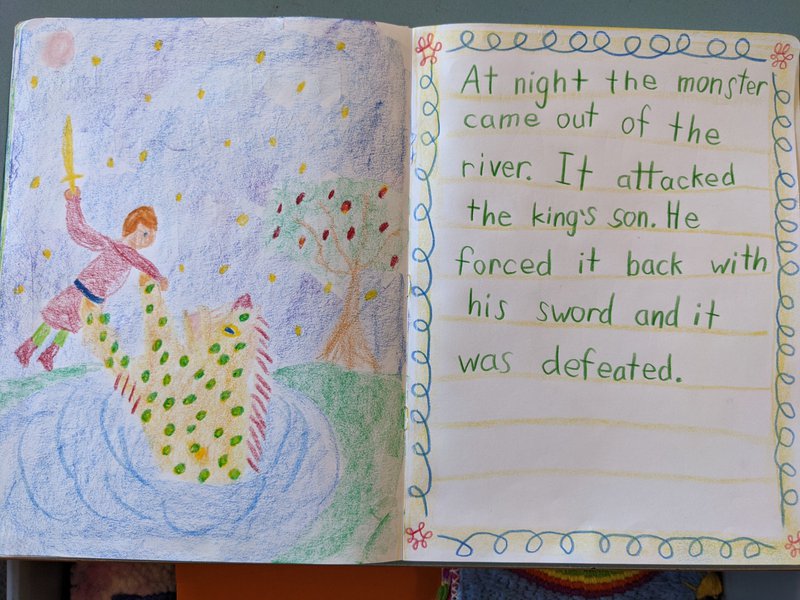 At night the monster
came out of the
river. It attacked
the king's son. He
forced it back with
his sword and it
was defeated.